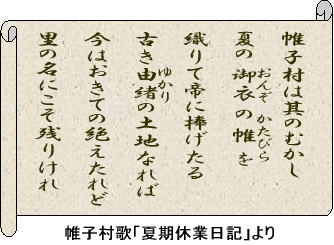 帷子村は其のむかし
夏の御衣の帷を
おんぞ かたびら
織りて帝に捧げたる
古き由緒の土地なれば
ゆかり
今はおきての絶えたれど
里の名にこそ残りけれ
帷子村歌「夏期休業日記」より